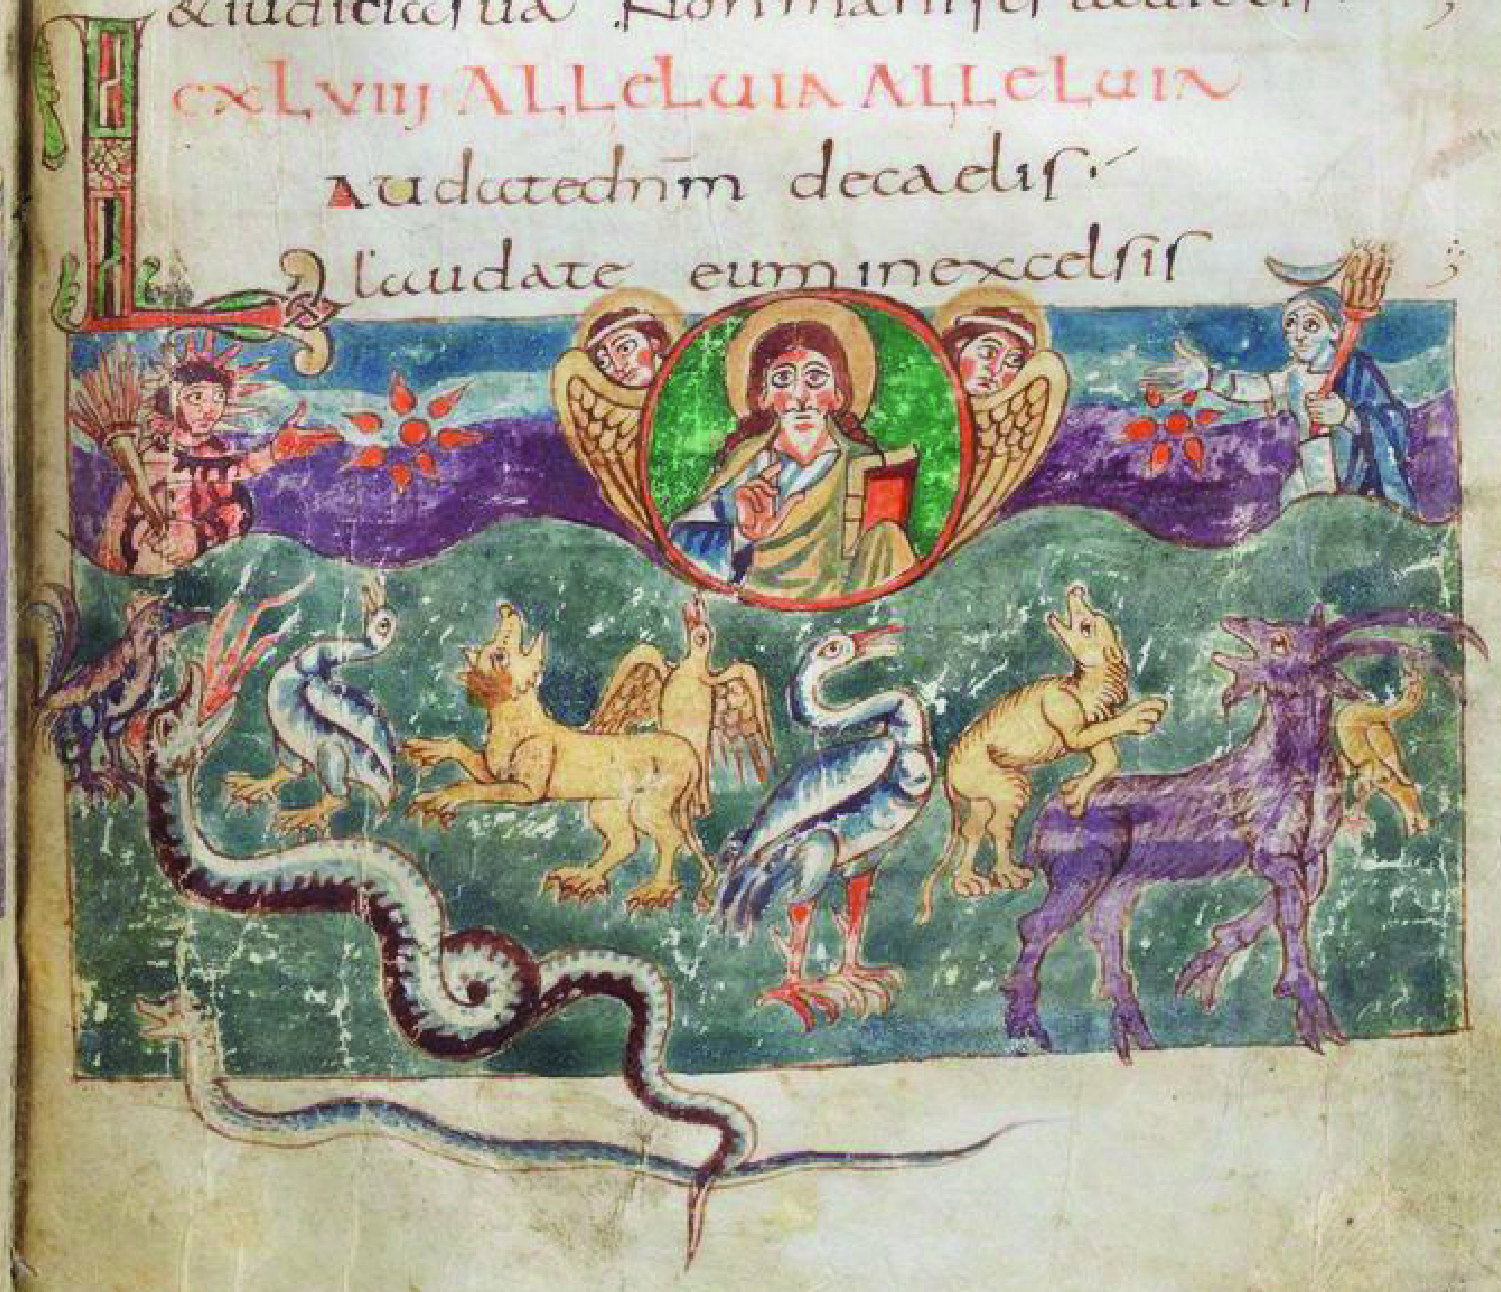 & iudicia sua Non manifes
CXLVIII ALLELUIA ALLELUIA
LAudate dnm decaelis
laudate eum inexcelsis